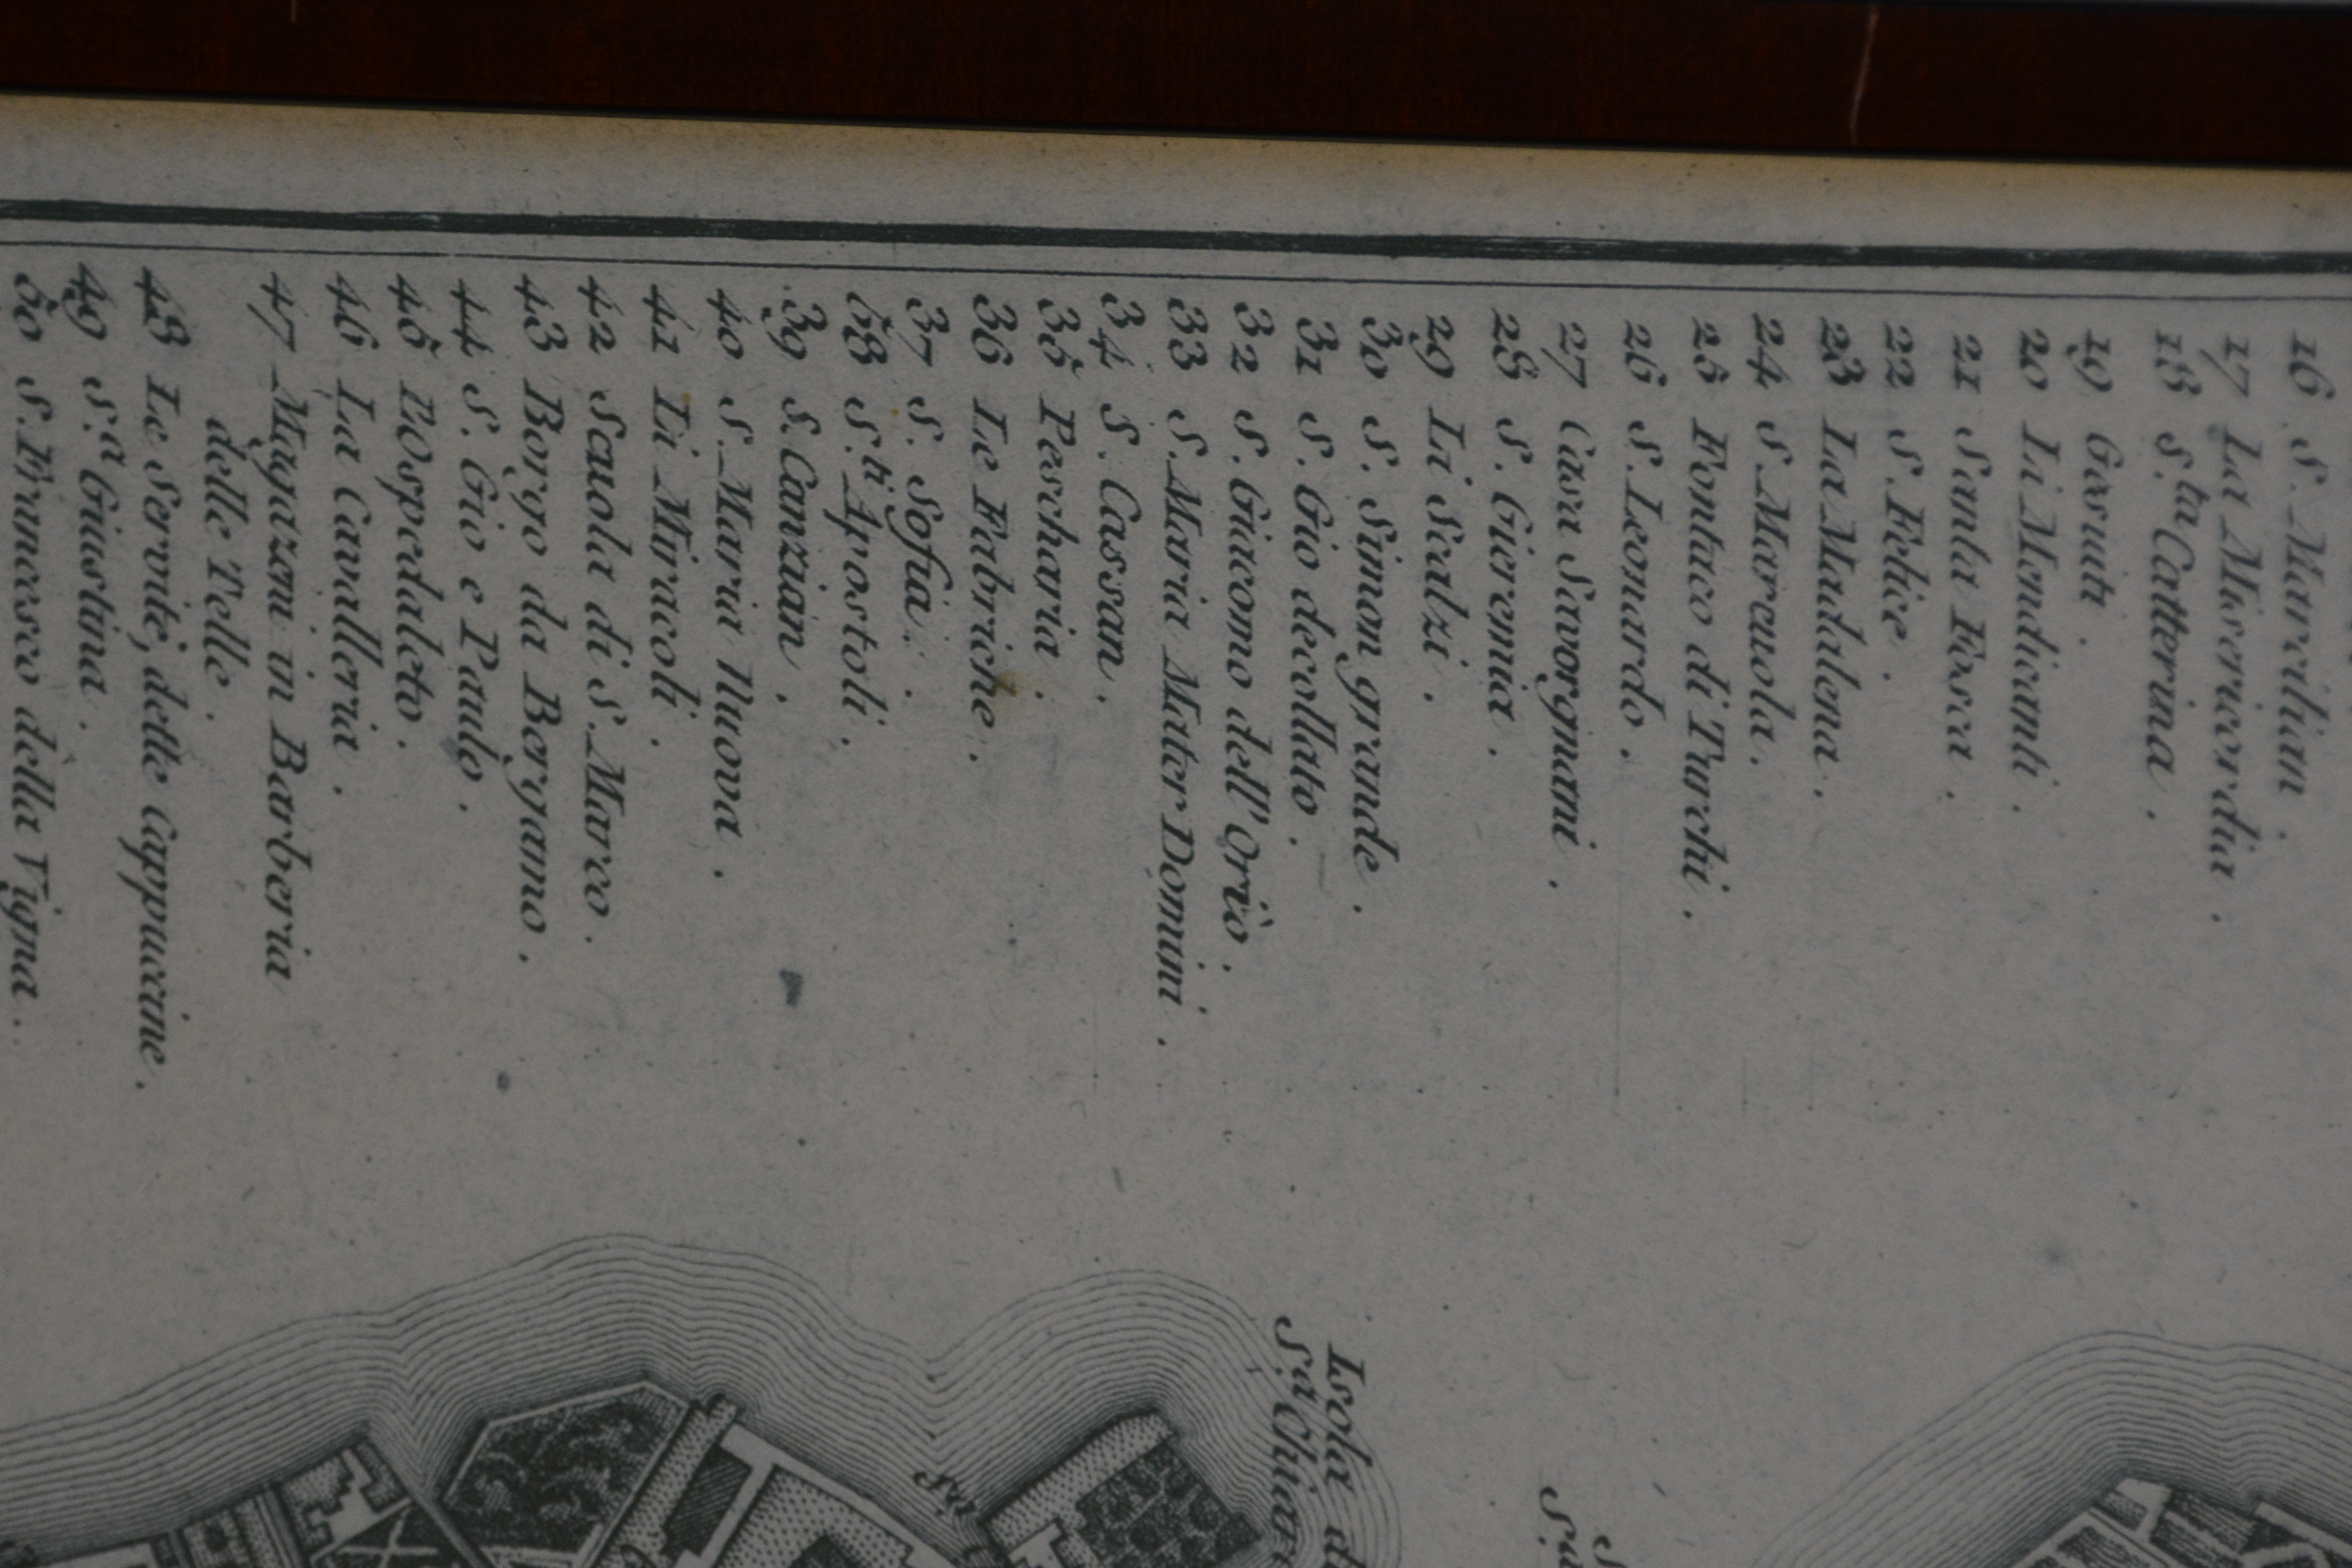 16 S. Marcilian.
17 La Misericordia.
18 S.ta Catterina.
19 Gesuiti.
20 Li Mendicanti.
21 Santa Fosca.
22 S. Felice.
23 La Madalena.
24 S. Marcuola.
25 Fontico di Turchi.
26 S. Leonardo.
27 Casa Savorgnani.
28 S. Gieremia.
29 Li Scalzi.
30 S. Simon grande.
31 S. Gio decollato.
32 S. Giacomo dell' Orio.
33 S. Maria Mater Domini.
34 S. Cassan.
35 Pescharia.
36 Le Fabriche.
37 S. Sofia.
38 S.ti Apostoli.
39 S. Canzian.
40 S. Maria Nuova.
41 Li Miracoli.
42 Scuola di S. Marco.
43 Borgo da Bergamo.
44 S. Gio e Paulo.
45 l'Ospedaleto.
46 La Cavalleria.
47 Magazeni in Barberia
delle Telle.
48 Le Servite, dette Cappuccine.
49 S.a Giustina.
50 S. Francesco della Vigna.
Isola di
S.a Chiara